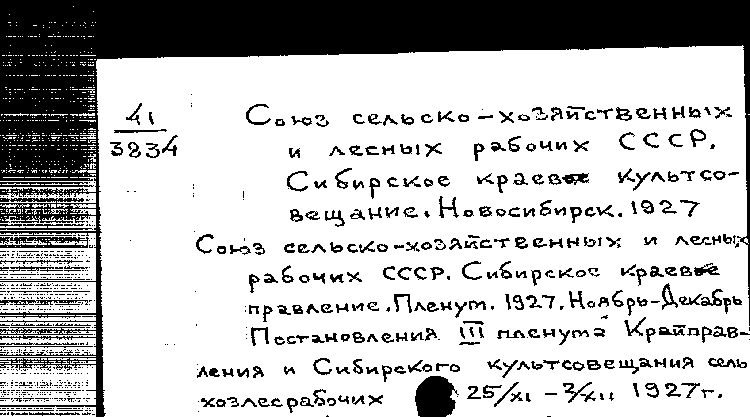 41
3834
Союз сельско-хозяйственных
и лесных рабочих СССР.
Сибирское краевое культсо-
вещание. Новосибирск. 1927
Союз сельско-хозяйственных и лесных
рабочих СССР. Сибирское краевое
правление. Пленум. 1927. Ноябрь-Декабрь
Постановления III пленума Крайправ-
ления и Сибирского культсовещания сель
хозлесрабочих 25/XI - 2/XII 1927г.